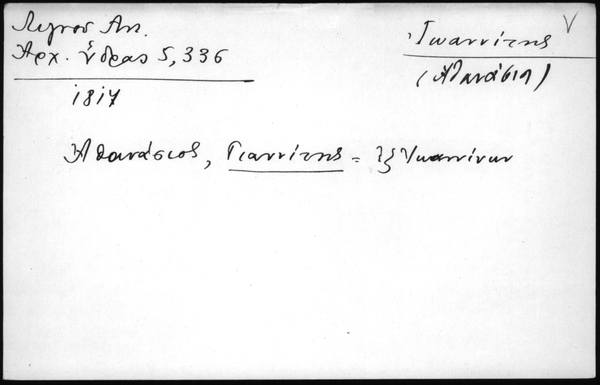 Λιγνού Αντ.
Αρχ. Ύδρας 5, 336
1817
Ἰωαννίτης
(Αθανάσιος)
Ἀθανάσιος, Γιαννίτης = ἐξ Ἰωαννίνων